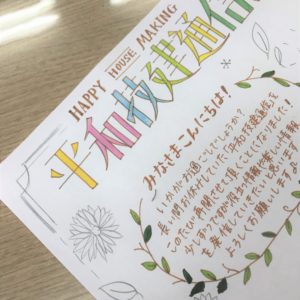 HAPPY HOUSE MAKING
平和技建通信
みなさまこんにちは!
いかがお過ごしでしょうか?
長い間お休みしていた「平和技建通信」を
このたび再開させて頂くことになりました!
少しずつですがお得な情報や楽しい情報
を発信していきたいと思います
よろしくお願いします。